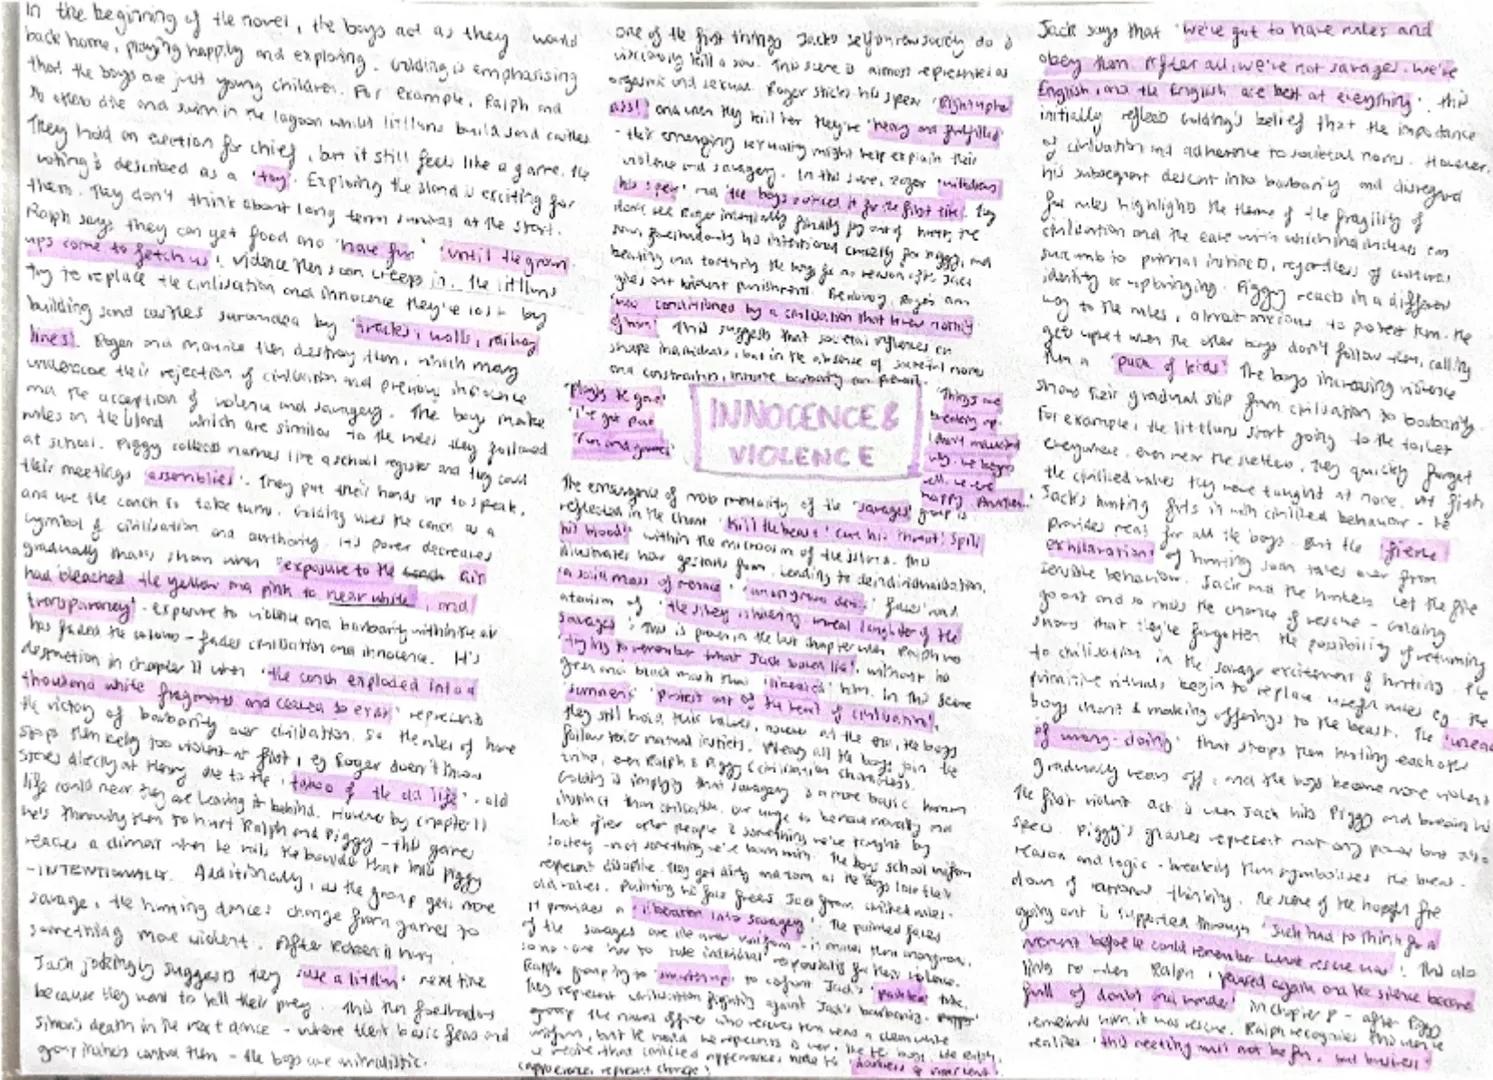 In the beginning of the novel, the boys act as they would
back home, playing happily and exploring. Golding is emphasising
that the boys are just young children. For example, Ralph and
dive and swim in the lagoon whilst littluns build sand castles
They hold an election for chief, but it still feels like a game, the
voting's described as a 'toy'. Exploring the island is exciting for
them. They don't think about long term survival at the start.
Ralph says they can get food and 'have fun' 'until the grown
ups come to fetch us'. Violence then soon creeps in. The littluns
try to replace the civilisation and innocence they've lost by
building sand castles surrounded by 'tracks, walls, railway
lines'. Roger and Maurice then destroy them, which may
underscore their rejection of civilisation and previous innocence
and the acception of violence and savagery. The boys make
rules on the island which are similar to the rules they followed
at school. Piggy collects names like a school register and they call
their meetings 'assemblies'. They put their hands up to speak,
and use the conch to take turns. Golding uses the conch as a
symbol of civilisation and authority. Its power decreases
gradually shown when 'exposure to the air
had bleached the yellow and pink to near white, and
transparency' - exposure to violence and barbarity within the air
has faded the colour - fades civilisation and innocence. It's
destruction in chapter 11 when 'the conch exploded into a
thousand white fragments and ceased to exist' represents
the victory of barbarity over civilisation. So the rules of home
stops them being too violent at first, eg Roger doesn't throw
stones directly at Henry due to the 'taboo of the old life'. old
life could mean they are leaving it behind. However by chapter 11
he's throwing them to hurt Ralph and Piggy - this game
reaches a climax when he rolls the boulder that kills Piggy
- INTENTIONALLY. Additionally, as the group gets more
savage, the hunting dances change from games to
something more violent. After Robert is hurt,
Jack jokingly suggests they 'use a littlun' next time
because they want to kill their prey. This fun foreshadows
Simon's death in the next dance - where their basic fears and
group control them - the boys are animalistic.
one of the first things Jack's do is
viciously kill a sow. This scene is almost represented as
orgasmic and sexual. Roger sticks his spear 'Right up her
ass!' and when they kill her they're 'heavy and fulfilled'
- their emerging sexuality might help explain their
violence and savagery. In this scene, Roger 'withdrew
his spear' and 'the boys noticed it for the first time'.
sow foreshadows his intentional cruelty for Piggy, and
beating and torturing the boys for no reason after Jack
gives out violent punishment. Roger's arm
'was conditioned by a civilisation that knew nothing
of him'. This suggests that societal influences can
shape individuals, but in the absence of societal norms
and constraints, innate barbarity can prevail.
'I've got
'Fun and games'
INNOCENCE &
VIOLENCE
'Things are
breaking up.
I don't understand
why. We began
well, we were
happy. And then.
The emergence of mob mentality of the 'savages' group is
reflected in the chant 'Kill the beast! Cut his throat! Spill
his blood!' within the microcosm of the island. This
illustrates how leading to deindividuation,
'a solid mass of menace' 'anonymous devils' faces and
atavism of 'the silvery laughter of the
savages'. This is proven in the last chapter when Ralph
'trying to remember what Jack looked like', without his
green and black mask that 'liberates' him. In this scene
Samneric 'protest out of the heart of civilisation',
they still hold their values, however at the end, the boys
follow their natural instincts. When all the boys join the
tribe, even Ralph & Piggy (civilisation characters),
Golding is implying that savagery is a more basic human
instinct than civilisation. Our urge to behave morally and
look after other people is something we're taught by
society - not something we're born with. The boys school uniform
represent discipline. They get dirty and torn as the boys lose their
old values. Painting his face frees Jack from civilised rules -
it provides a 'liberation into savagery'. The painted faces
of the savages are like another uniform - it makes them anonymous,
no-one has to take individual responsibility for their violence.
Ralph group to combat Jack's 'painted' tribe.
They represent civilisation fighting against Jack's barbarity.
the naval officer who rescues them wears a clean white
uniform, but the world he represents is war. like the boys, we
realise that civilised appearances, need to 'darkness of man's heart'.
Jack says that 'we've got to have rules and
obey them. After all, we're not savages. We're
English, and the English are best at everything'. This
initially reflects Golding's belief that the importance
of civilisation and adherence to societal norms. However,
his subsequent descent into barbarity and disregard
for rules highlights the theme of the fragility of
civilisation and the ease with which individuals can
succumb to primal instinct, regardless of cultural
identity or upbringing. Piggy reacts in a different
way to the rules, almost anxious to protect them. He
gets upset when the other boys don't follow them, calling
them a 'pack of kids'. The boys increasing violence
shows their gradual slip from civilisation to barbarity.
For example, the littluns start going to the toilet
everywhere, even near the shelters, they quickly forget
the civilised values they were taught at home. At first
Jack's hunting fits in with civilised behaviour - he
provides meat for all the boys. But the 'fierce
exhilaration' of hunting soon takes over from
sensible behaviour. Jack and the hunters let the fire
go out and so miss the chance of rescue - Golding
shows that they've forgotten the possibility of returning
to civilisation in the savage excitement of hunting. The
primitive rituals begin to replace useful rules eg. the
boys chant & making offerings to the beast. The
of wrong-doing' that stops them hurting each other
gradually wears off, and the boys become more violent
The first violent act is when Jack hits Piggy and breaks his
specs. Piggy's glasses represent not only power but also
reason and logic - breaking them symbolises the break-
down of rational thinking. The scene of the fire
going out is supported through 'Jack had to think for a
moment before he could remember what rescue was'. This also
when Ralph 'paused again and the silence became
full of doubt and wonder' in chapter 8 - after Piggy
reminds him it was rescue. Ralph recognises this when he
realises 'this meeting must not be fun, but business'